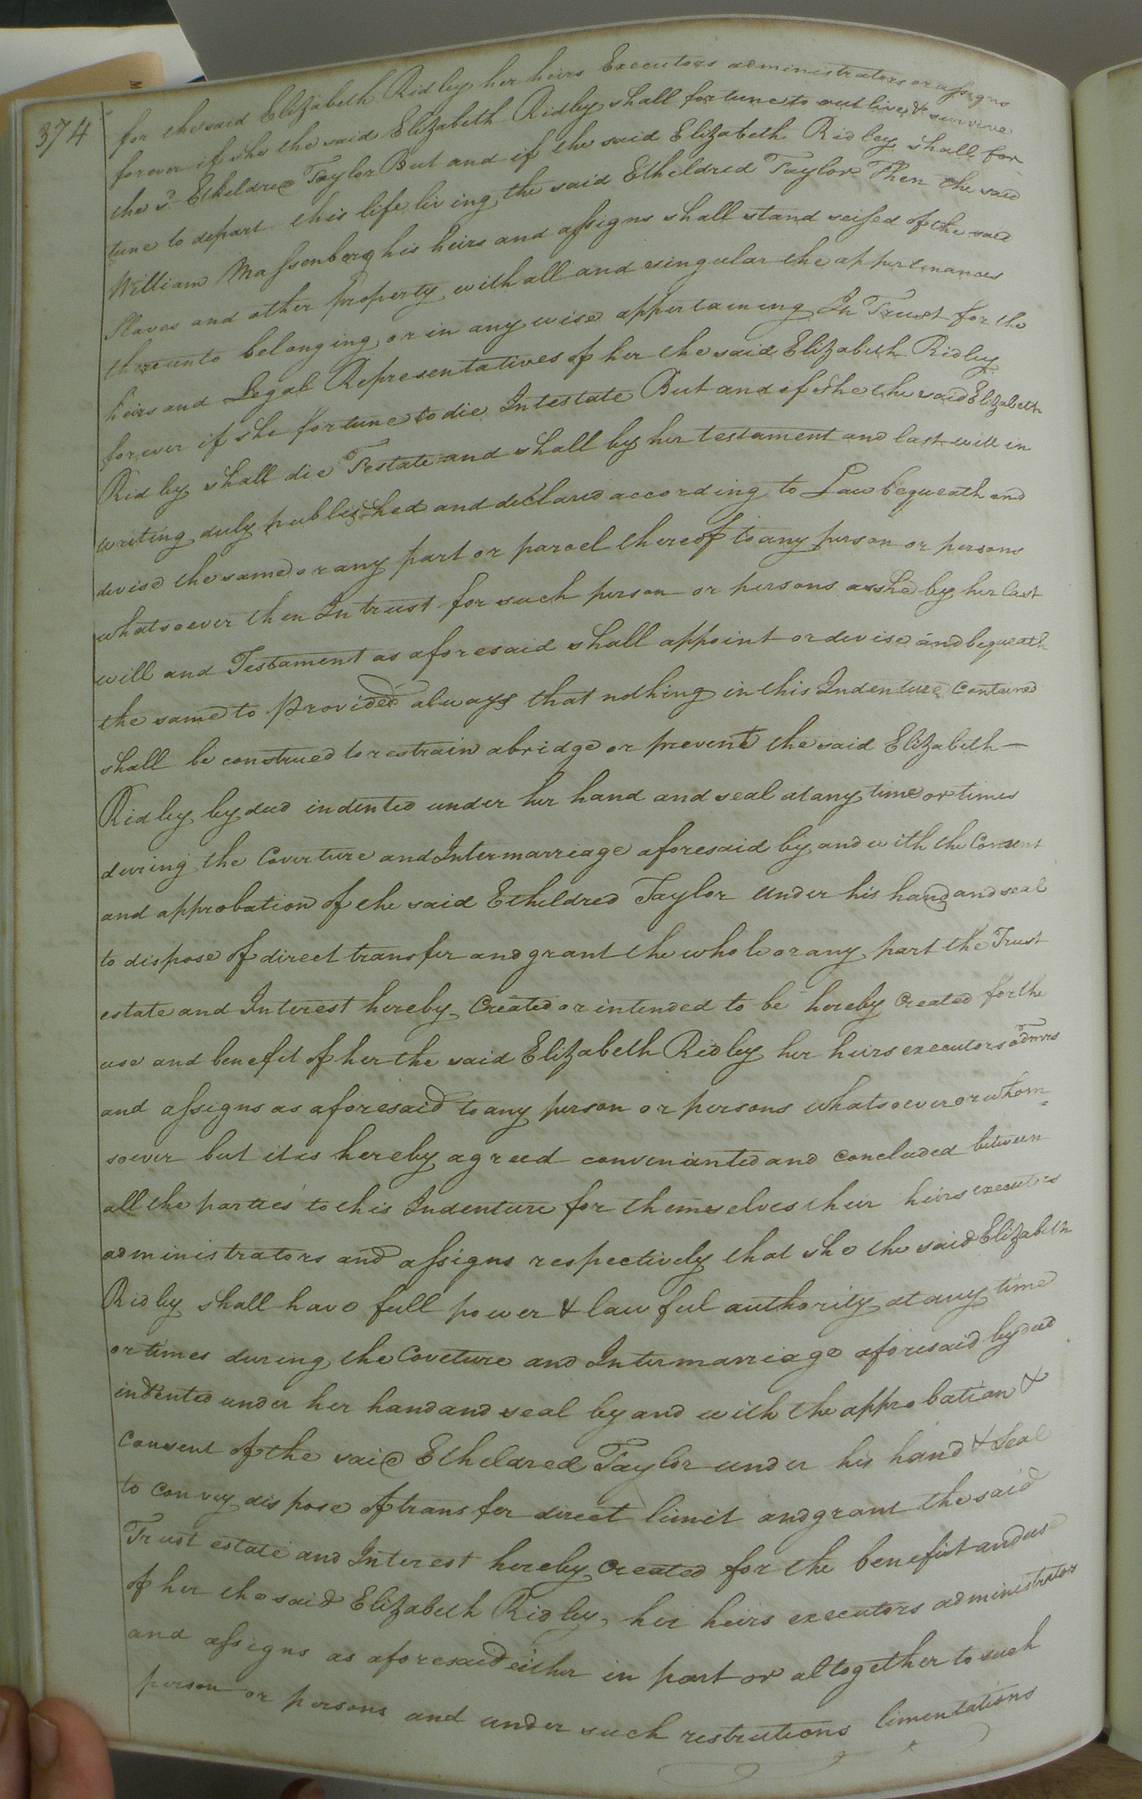 374
for the said Elizabeth Ridley her heirs Executors administrators or assigns
forever if she the said Elizabeth Ridley shall fortune to out live & survive
the sd. Etheldred Taylor But and if the said Elizabeth Ridley shall for
tune to depart this life living the said Etheldred Taylor Then the said
William Massenberg his heirs and assigns shall stand seised of the said
Slaves and other property with all and singular the appurtenances
thereunto belonging or in any wise appertaining In Trust for the
heirs and Legal Representatives of her the said Elizabeth Ridley
forever if she fortune to die Intestate But and if she the said Elizabeth
Ridley shall die Testate and shall by her testament and last will in
writing duly published and declared according to Law bequeath and
devise the same or any part or parcel thereof to any person or persons
whatsoever then In trust for such person or persons as she by her last
will and Testament as aforesaid shall appoint or devise and bequeath
the same to Provided always that nothing in this Indenture Contained
shall be construed to restrain abridge or prevent the said Elizabeth
Ridley by deed indented under her hand and seal at any time or times
during the Coverture and Intermarriage aforesaid by and with the Consent
and approbation of the said Etheldred Taylor under his hand and seal
to dispose of direct transfer and grant the whole or any part the Trust
estate and Interest hereby Created or intended to be hereby Created for the
use and benefit of her the said Elizabeth Ridley her heirs executors admrs
and assigns as aforesaid to any person or persons whatsoever or whom=
soever but it is hereby agreed convenianted and concluded between
all the parties to this Indenture for themselves their heirs executors
administrators and assigns respectively that she the said Elizabeth
Ridley shall have full power & lawful authority at any time
or times during the Coveture and Intermarriage aforesaid by deed
indented under her hand and seal by and with the approbation &
Consent of the said Etheldred Taylor under his hand & Seal
to convey dispose of transfer direct limit and grant the said
Trust estate and Interest hereby Created for the benefit and use
of her the said Elizabeth Ridley, her heirs executors administrators
and assigns as aforesaid either in part or altogether to such
person or persons and under such restrictions limentations